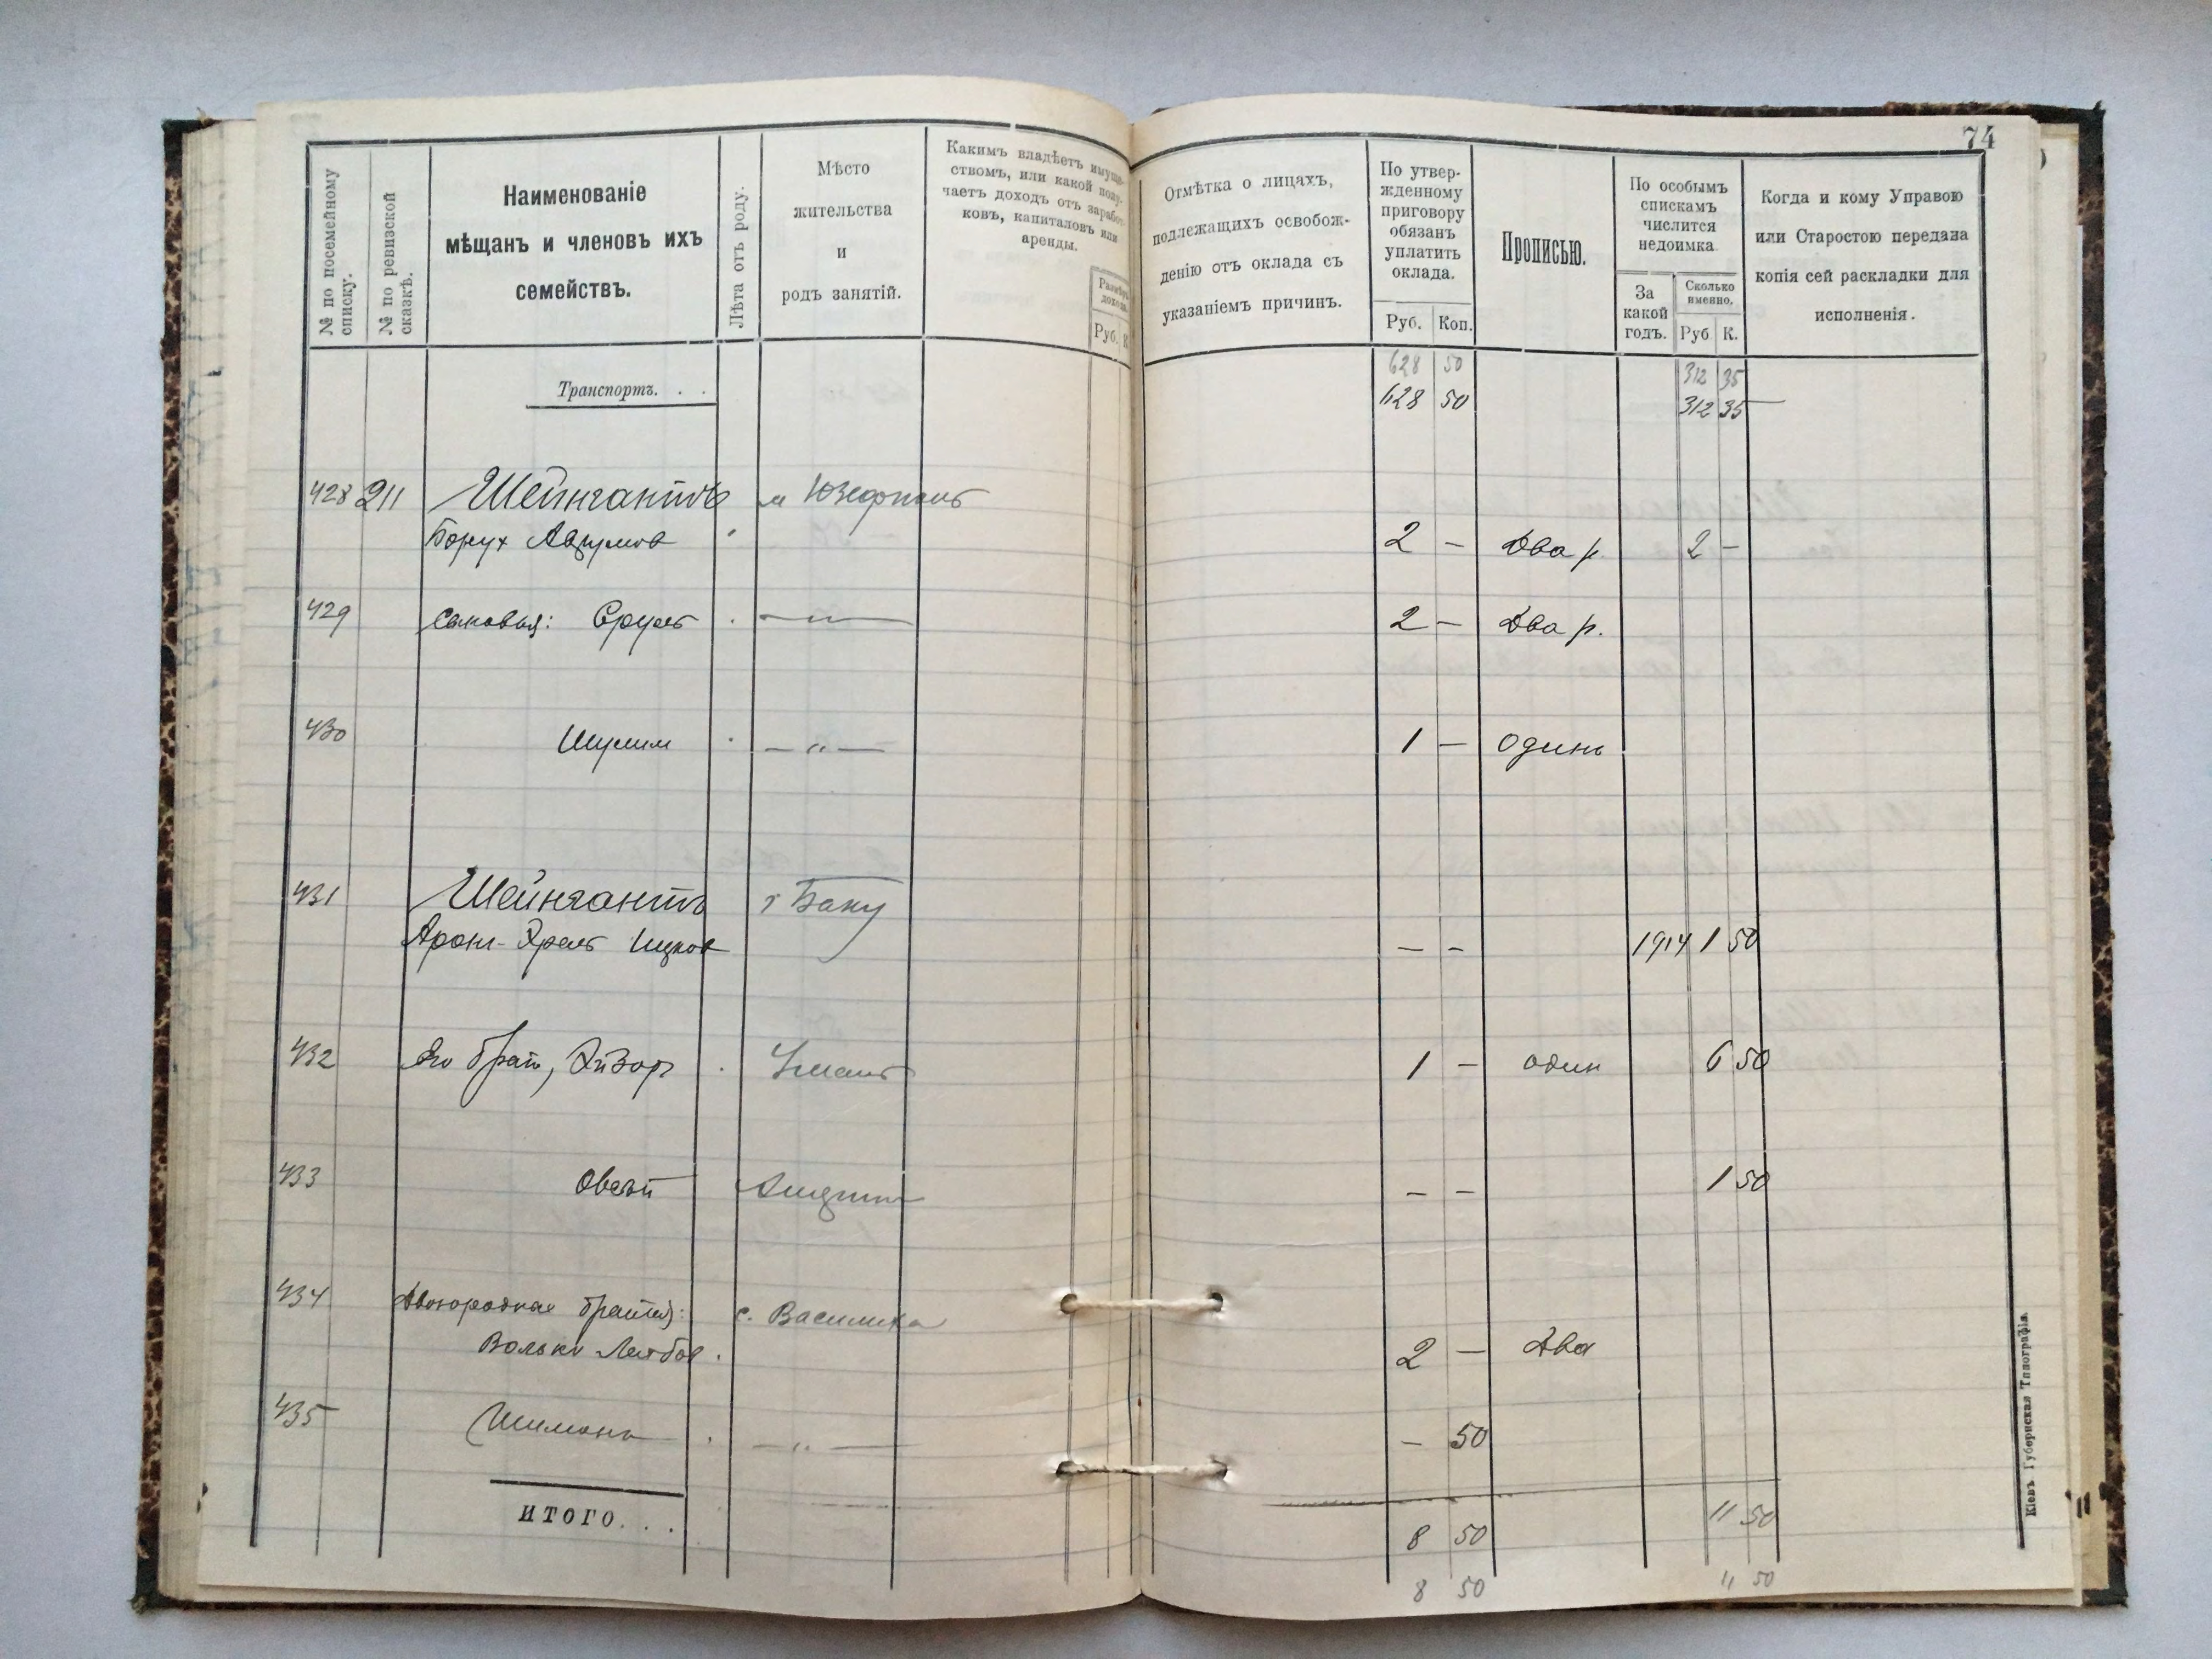 74
№ по посемейному списку.
№ по ревизской сказкѣ.
Наименованіе
мѣщанъ и членовъ ихъ
семействъ.
Лѣта отъ роду.
Мѣсто
жительства
и
родъ занятій.
Какимъ владѣетъ имуще-
ствомъ, или какой полу-
чаетъ доходъ отъ заработ-
ковъ, капиталовъ или
аренды.
Размѣръ
дохода.
Руб. К
Отмѣтка о лицахъ,
подлежащихъ освобож-
денію отъ оклада съ
указаніемъ причинъ.
По утвер-
жденному
приговору
обязанъ
уплатить
оклада.
Руб. Коп.
Прописью.
По особымъ
спискамъ
числится
недоимка.
За
какой
годъ.
Сколько
именно.
Руб К.
Когда и кому Управою
или Старостою передана
копія сей раскладки для
исполненія.
628 50 312 35
Транспортъ. . . 628 50 312 35
428 211 Шейнгантъ м Юзефполь
Борух Аврумов 2 — Два р. 2 —
429 сыновья: Сруль — " — 2 — Два р.
430 Шулим — " — 1 — Одинъ
431 Шейнгантъ г Баку
Арон- Ицков — - 1914 1 50
432 Его брат, Умань 1 — один 6 50
433 Овсей — — 1 50
434 Двоюродные братья: с.
Вольки Лейбов 2 — Два
435 Шимонъ — " — — 50
ИТОГО. . . 8 50 11 50
8 50 11 50
Кіевъ Губернская Типографія.